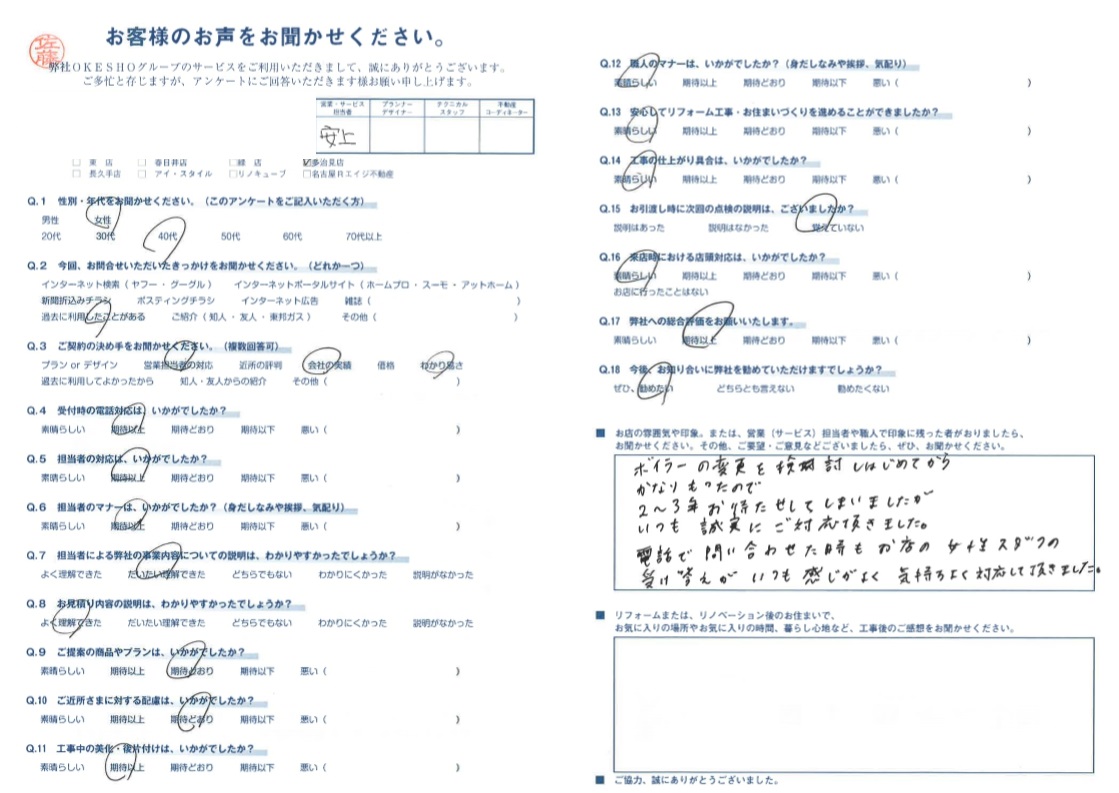 佐藤
お客様のお声をお聞かせください。
弊社OKESHOグループのサービスをご利用いただきまして、誠にありがとうございます。
ご多忙と存じますが、アンケートにご回答いただきます様お願い申し上げます。
営業・サービス担当者 プランナーデザイナー テクニカルスタッフ 不動産コーディネーター
安上
□ 東 店 □ 春日井店 □緑 店 ☑多治見店
□ 長久手店 □ アイ・スタイル □リノキューブ □名古屋Rエイジ不動産
Q.1 性別・年代をお聞かせください。（このアンケートをご記入いただく方）
男性 女性
20代 30代 40代 50代 60代 70代以上
Q.2 今回、お問合せいただいたきっかけをお聞かせください。（どれか一つ）
インターネット検索（ヤフー・グーグル） インターネットポータルサイト（ホームプロ・スーモ・アットホーム）
新聞折込みチラシ ポスティングチラシ インターネット広告 雑誌（ ）
過去に利用したことがある ご紹介（知人・友人・東邦ガス） その他（ ）
Q.3 ご契約の決め手をお聞かせください。（複数回答可）
プラン or デザイン 営業担当者の対応 近所の評判 会社の実績 価格 わかり易さ
過去に利用してよかったから 知人・友人からの紹介 その他（ ）
Q.4 受付時の電話対応は、いかがでしたか？
素晴らしい 期待以上 期待どおり 期待以下 悪い（ ）
Q.5 担当者の対応は、いかがでしたか？
素晴らしい 期待以上 期待どおり 期待以下 悪い（ ）
Q.6 担当者のマナーは、いかがでしたか？（身だしなみや挨拶、気配り）
素晴らしい 期待以上 期待どおり 期待以下 悪い（ ）
Q.7 担当者による弊社の事業内容についての説明は、わかりやすかったでしょうか？
よく理解できた だいたい理解できた どちらでもない わかりにくかった 説明がなかった
Q.8 お見積り内容の説明は、わかりやすかったでしょうか？
よく理解できた だいたい理解できた どちらでもない わかりにくかった 説明がなかった
Q.9 ご提案の商品やプランは、いかがでしたか？
素晴らしい 期待以上 期待どおり 期待以下 悪い（ ）
Q.10 ご近所さまに対する配慮は、いかがでしたか？
素晴らしい 期待以上 期待どおり 期待以下 悪い（ ）
Q.11 工事中の美化・後片付けは、いかがでしたか？
素晴らしい 期待以上 期待どおり 期待以下 悪い（ ）
Q.12 職人のマナーは、いかがでしたか？（身だしなみや挨拶、気配り）
素晴らしい 期待以上 期待どおり 期待以下 悪い（ ）
Q.13 安心してリフォーム工事・お住まいづくりを進めることができましたか？
素晴らしい 期待以上 期待どおり 期待以下 悪い（ ）
Q.14 工事の仕上がり具合は、いかがでしたか？
素晴らしい 期待以上 期待どおり 期待以下 悪い（ ）
Q.15 お引渡し時に次回の点検の説明は、ございましたか？
説明はあった 説明はなかった 覚えていない
Q.16 来店時における店頭対応は、いかがでしたか？
素晴らしい 期待以上 期待どおり 期待以下 悪い（ ）
お店に行ったことはない
Q.17 弊社への総合評価をお願いいたします。
素晴らしい 期待以上 期待どおり 期待以下 悪い（ ）
Q.18 今後、お知り合いに弊社を勧めていただけますでしょうか？
ぜひ、勧めたい どちらとも言えない 勧めたくない
■ お店の雰囲気や印象。または、営業（サービス）担当者や職人で印象に残った者がおりましたら、
お聞かせください。その他、ご要望・ご意見などございましたら、ぜひ、お聞かせください。
ボイラーの変更を検討討しはじめてから
かなりもったので
2〜3年お待たせしてしまいましたが
いつも誠実にご対応頂きました。
電話で問い合わせた時もお店の女性スタッフの
受け答えがいつも感じがよく気持ちよく対応して頂きました。
■ リフォームまたは、リノベーション後のお住まいで、
お気に入りの場所やお気に入りの時間、暮らし心地など、工事後のご感想をお聞かせください。
■ ご協力、誠にありがとうございました。